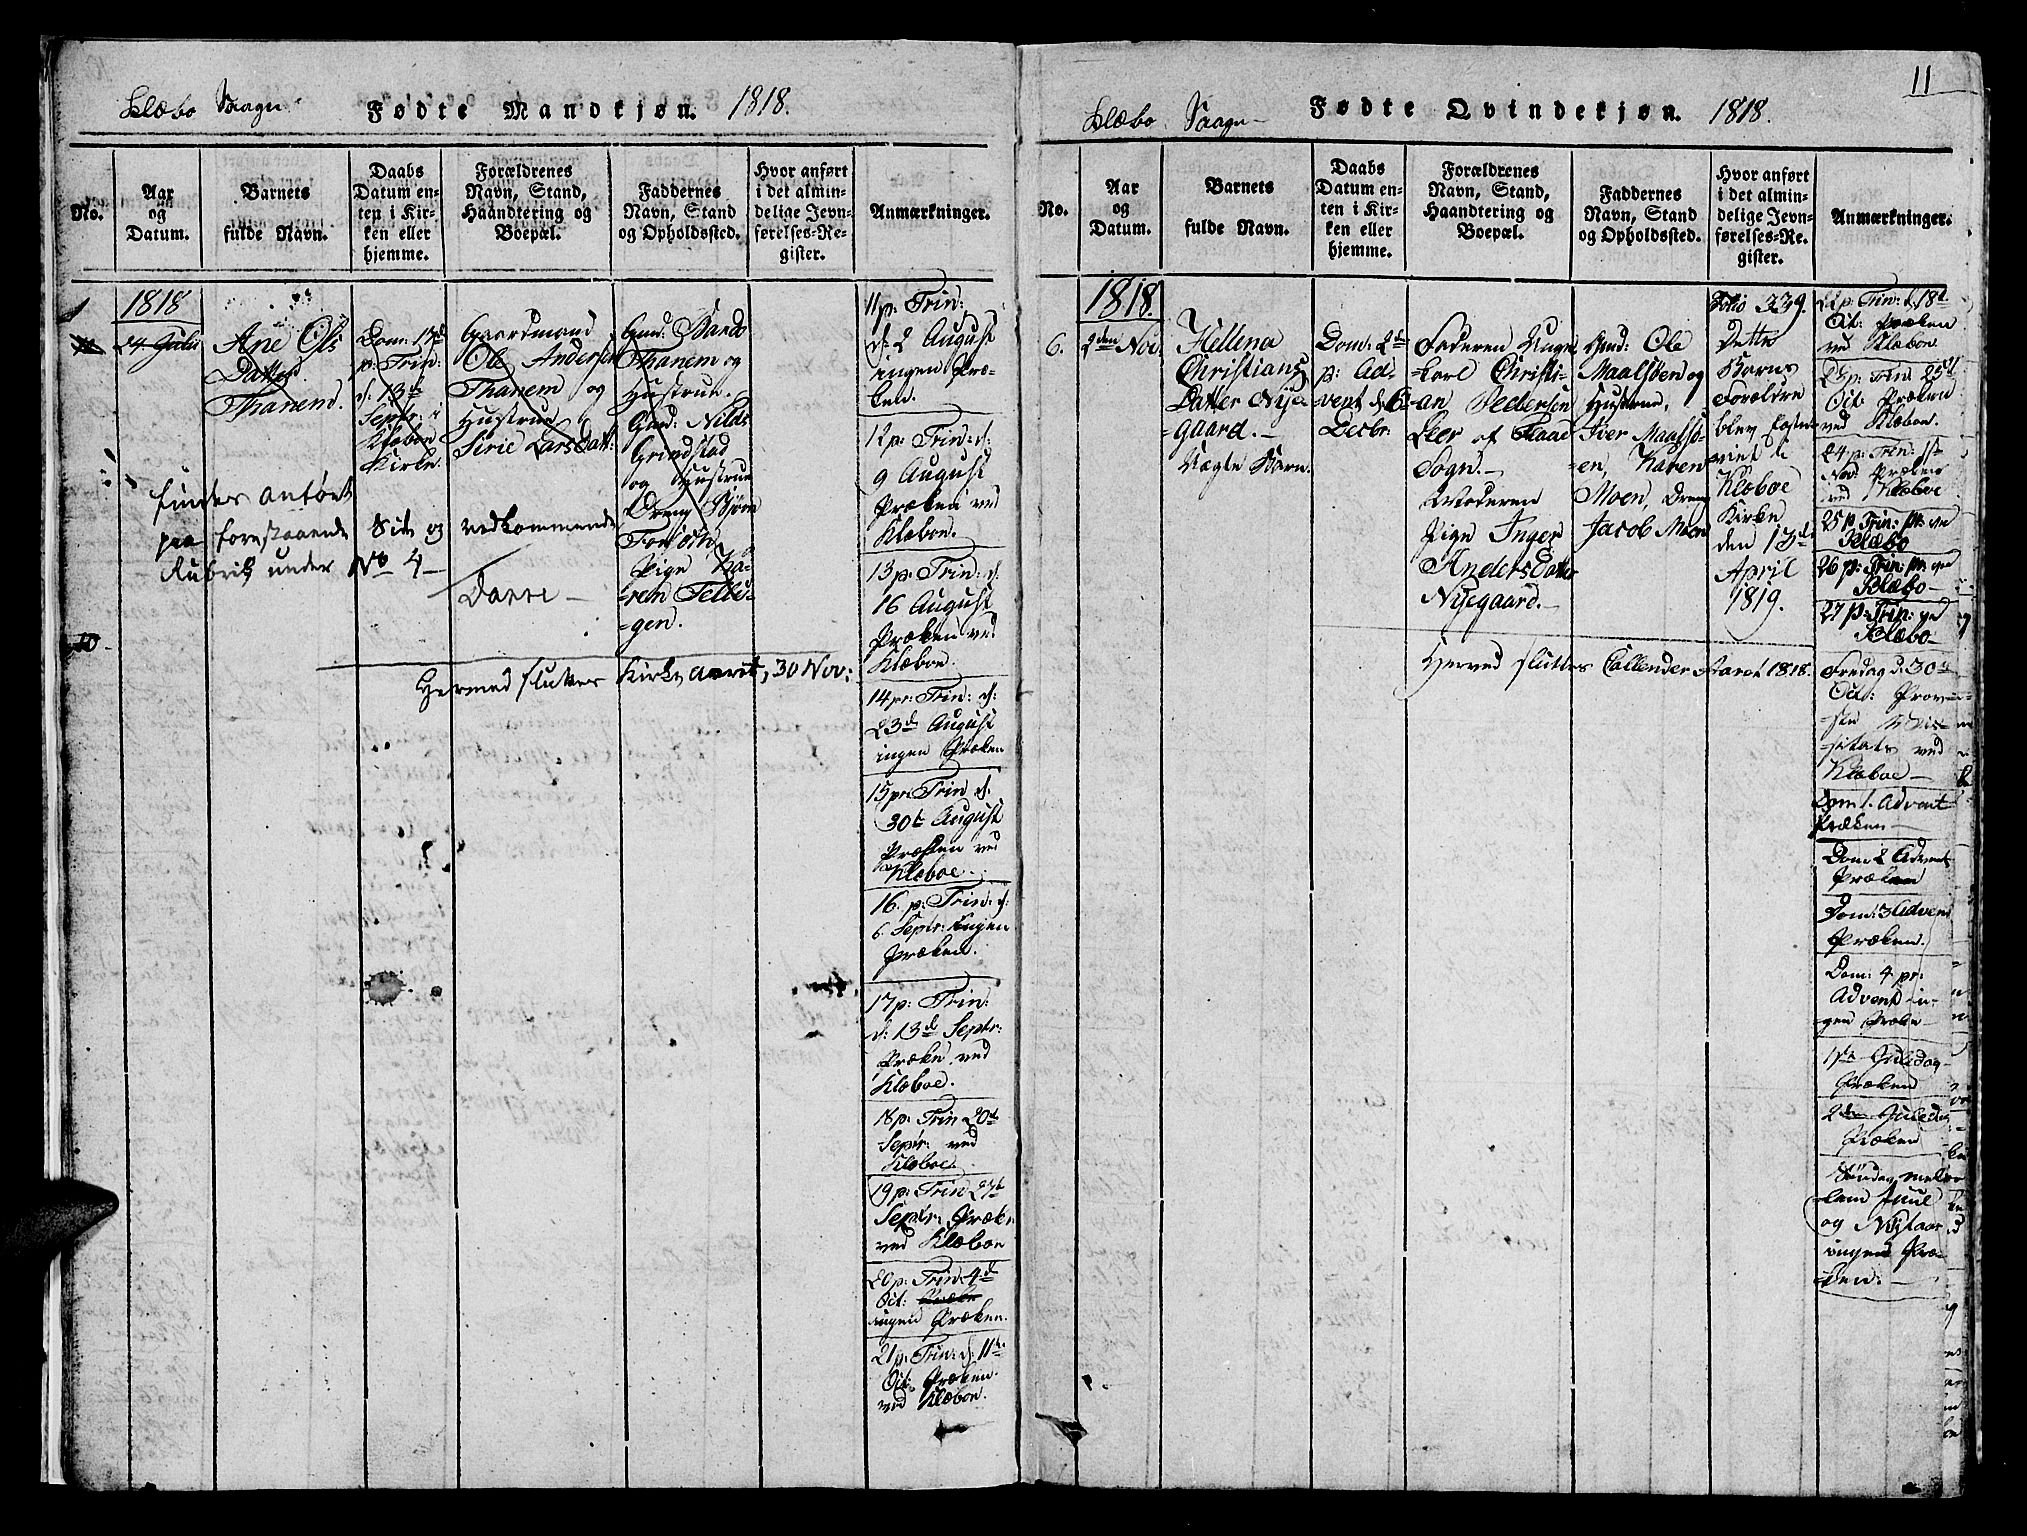 Klæbo Saagn
Fødte Mandkjøn. 1818.
No.
Aar
og
Datum.
Barnets
fulde Navn.
Daabs
Datum en-
ten i Kir-
ken eller
hjemme.
Forældrenes
Navn, Stand,
Haandtering og
Boepæl.
Faddernes
Navn, Stand
og Opholdssted.
Hvor anført
i det almin-
delige Jevn-
førelses-Re-
gister.
Anmærkninger.
1818
Ane Ols
Datter
Thanem.
Dom: 17de
p: Trin:
d. 13de
Septr: i
Klæboe
Kirke.
Gaardmand
Ole Andersen
Thanem og
Hustrue
Sirie Lars Datt:
Gmd:
Thanem og
Hustrue.
Gmd: Nils
Grindstad
og Hustrue
Dreng Bjørn
Pige Ka-
-ren Telli-
-gen.
findes anført
paa forestaaende Side og vedkommende
Rubrik under No 4 —
Hermed slutter Kirke Aaret, 30 Nov:
11 p: Trin:
d: 2 August
ingen Præ-
ken.
12 p: Trin: d:
9 August
Præken ved
Klæboe.
13 p: Trin: d:
16 August
Præken ved
Klæboe.
14 pr: Trin: d:
23de August
ingen Præken
15 pr: Trin d:
30te August
Præken ved
Klæboe.
16. p: Trin: d:
6 Septr: Ingen
Præken.
17 p: Trin:
d: 13de Septr:
Præke ved
Klæboe.
18 p: Trin 20de
Septr: ved
Klæboe.
19 p: Trin 27de
Septr: Præk:
ved Klæboe
20 p: Trin: 4de
Oct: Præke
ingen Præken.
21 p: Trin: d: 11te
Oct: Præken
ved Klæboe.
11
Klæbo Saagn
Fødte Qvindekjøn. 1818.
No.
Aar
og
Datum.
Barnets
fulde Navn.
Daabs
Datum en-
ten i Kir-
ken eller
hjemme.
Forældrenes
Navn, Stand,
Haandtering og
Boepæl.
Faddernes
Navn, Stand
og Opholdssted.
Hvor anført
i det almin-
delige Jevn-
førelses-Re-
gister.
Anmærkninger.
1818.
6.
2den Nov:
Hellena
Christians
Datter Nye-
-gaard.
Uægte Barn.
Dom: 2de
p: Ad-
vent d. 6te
Decbr:
Faderen Unge
-karl Christi-
-an Pedersen
af
Sogn.
Moderen
Pige Inger
Anders Datter
Nyegaard.
Gmd: Ole
Maalsøen og
Hustrue,
Iver Maalsø-
en, Karen
Moen, Dreng
Jacob Moen
Folio 339.
Dette
Barns
Forældre
blev
viet i
Klæboe
Kirke
den 13de
April
1819.
Herved sluttes Callender Aaret 1818.
22 p: Trin: d. 18de
Oct: Præken
ved Klæboe
23 p: Trin 25de
Oct: Præken
ved Klæboe.
24 p: Trin: 1ste
Nov: Præken
ved Klæboe
25 p: Trin: Pr: ved
Klæbo
26 p: Trin: Pr: ved
Klæbo
27 p: Trin: ved
Klæbo
Fredag d: 30te
Oct: Prov-
-sten Vi-
-sitats ved
Klæboe
Dom 1. Advent
Præken
Dom 2 Advent
Præken
Dom: 3 Advent
Præken.
Dom: 4 pr:
Advent in-
gen Præke
1ste Juledag
Præken
2den Juledag
Præken
Søndag mel-
lem Juul
og Nytaar
ingen Præ-
ken.